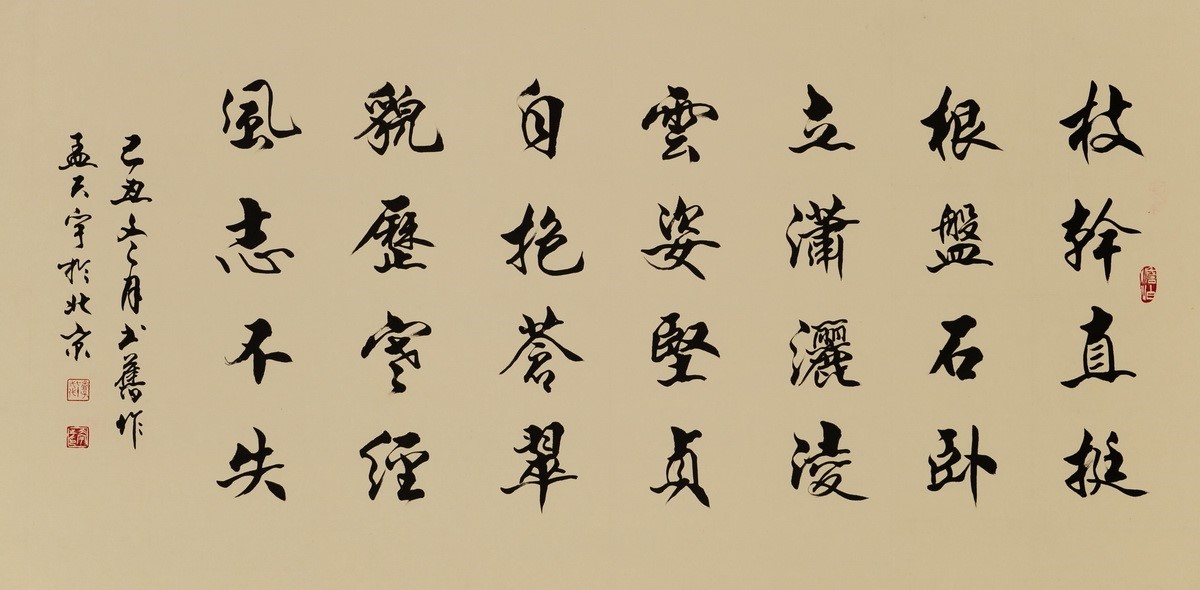 枝幹直挺
根盤石卧
立瀟灑淩
雲姿堅貞
自抱蒼翠
貌歷寒經
風志不失
己丑冬月書舊作
孟天宇於北京